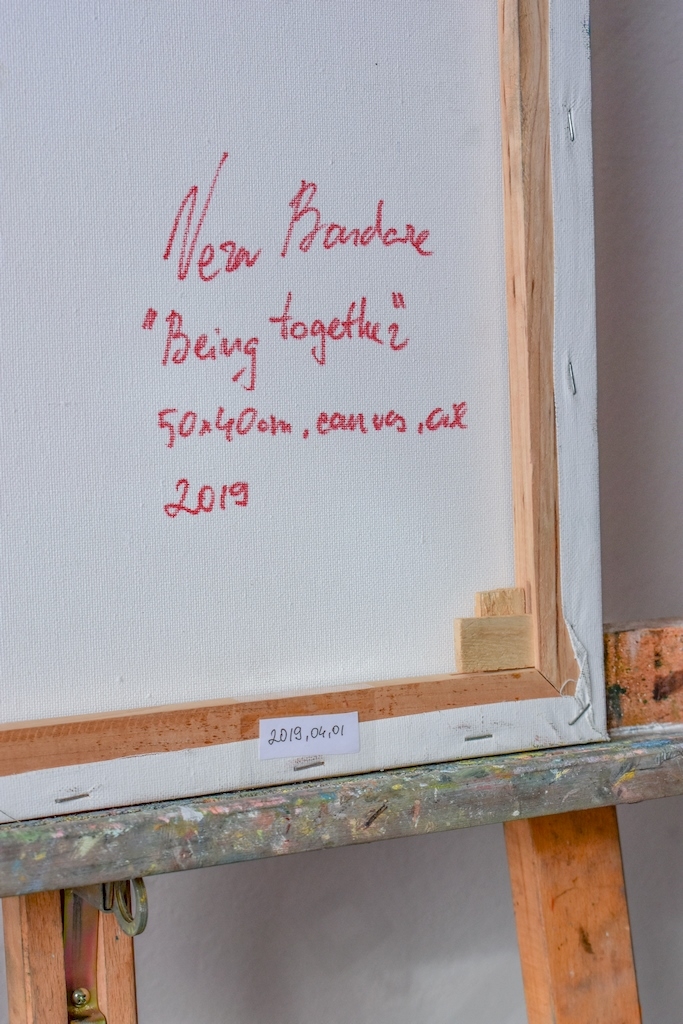 Vera Bondare
"Being together"
50x40cm, canvas, oil
2019
2019,04,01